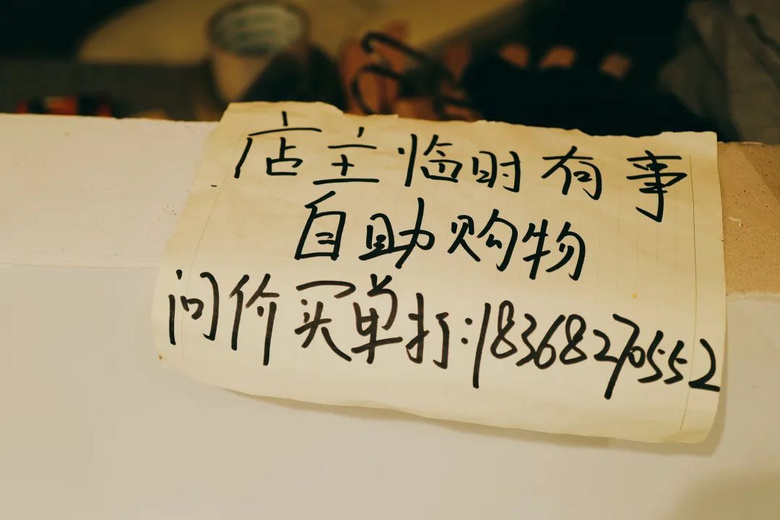 店主临时有事
自助购物
问价买单打:18368270552